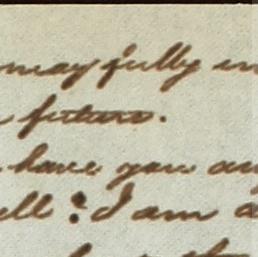 may fully
future.
have you
ell? I am a